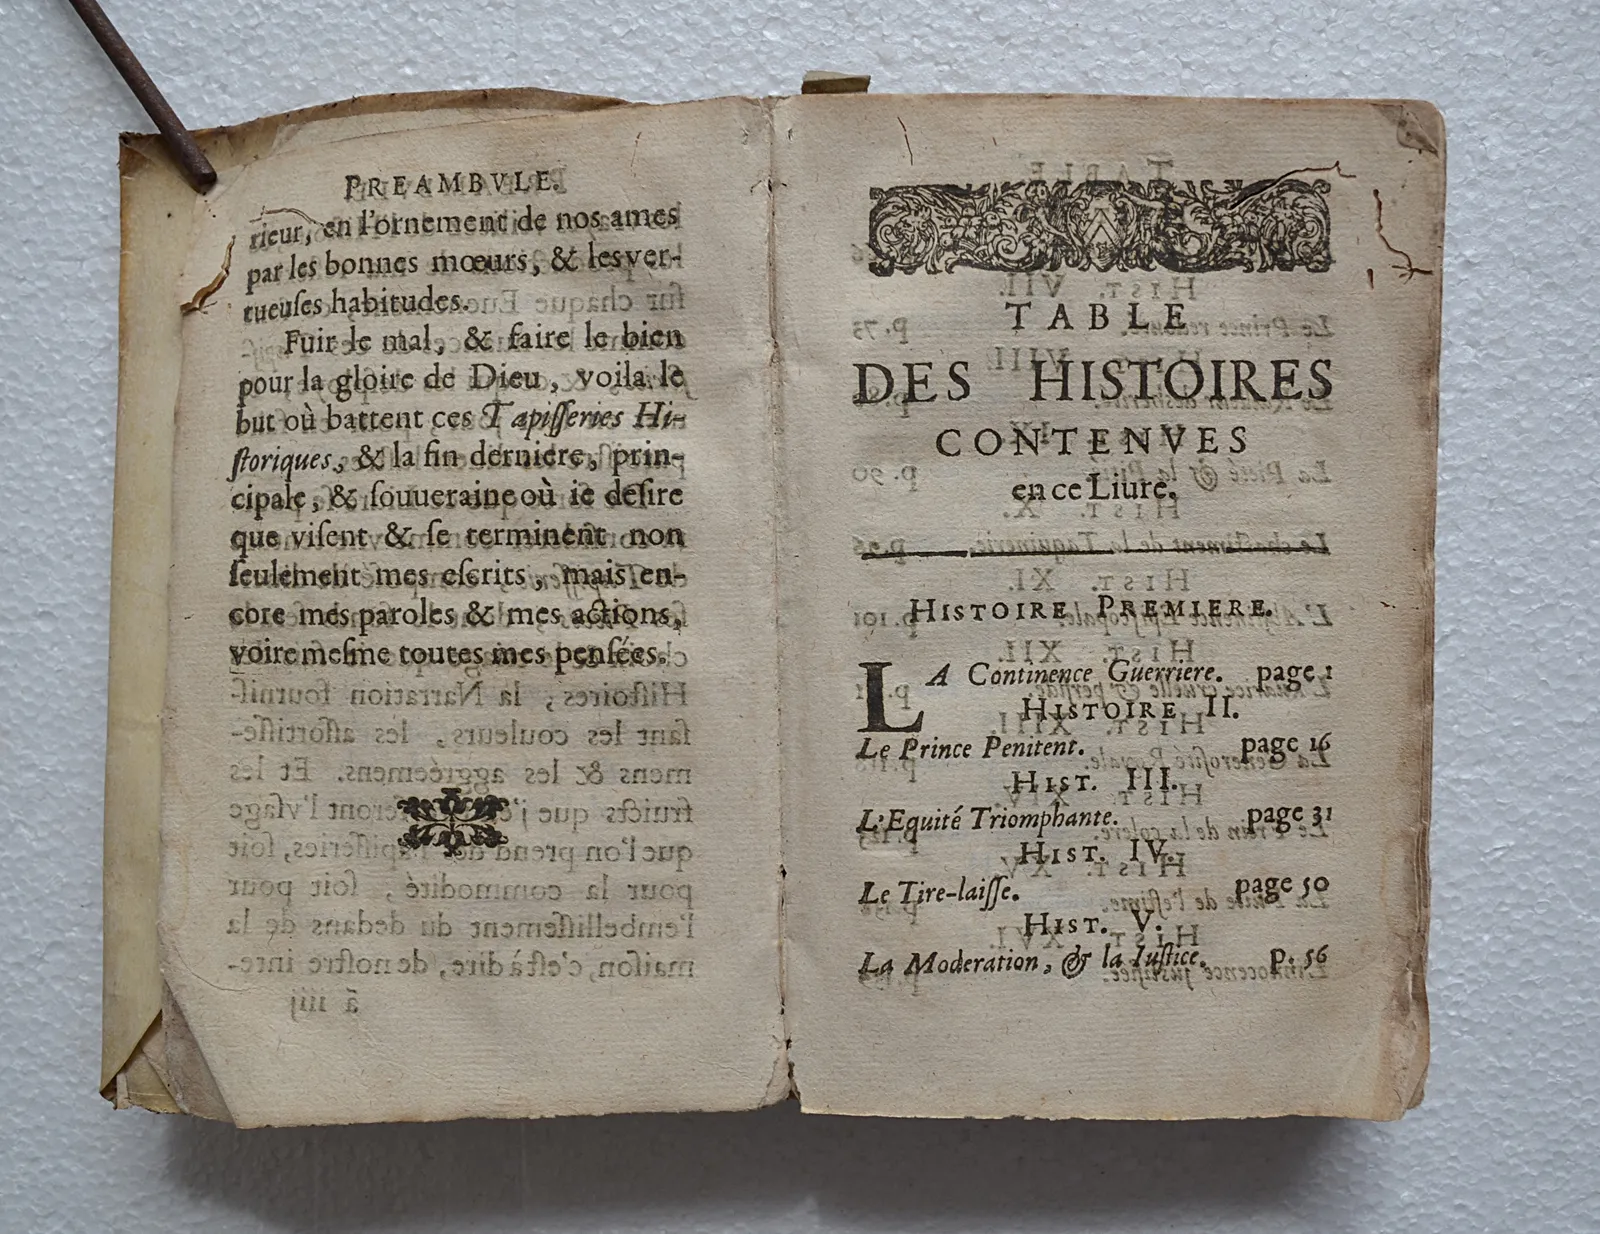 PREAMBVLE.
rieur, en l'ornement de nos ames
par les bonnes mœurs, & les ver-
tueuſes habitudes.
Fuir le mal, & faire le bien
pour la gloire de Dieu, voila le
but où battent ces Tapiſſeries Hi-
ſtoriques, & la fin derniere, prin-
cipale, & ſouueraine où ie deſire
que viſent & ſe terminent non
ſeulement mes eſcrits, mais en-
core mes paroles & mes actions,
voire meſme toutes mes penſées.
TABLE
DES HISTOIRES
CONTENVES
en ce Liure.
HISTOIRE PREMIERE.
LA Continence Guerriere. page 1
HISTOIRE II.
Le Prince Penitent. page 16
HIST. III.
L'Equité Triomphante. page 31
HIST. IV.
Le Tire-laiſſe. page 50
HIST. V.
La Moderation, & la Iuſtice. p. 56